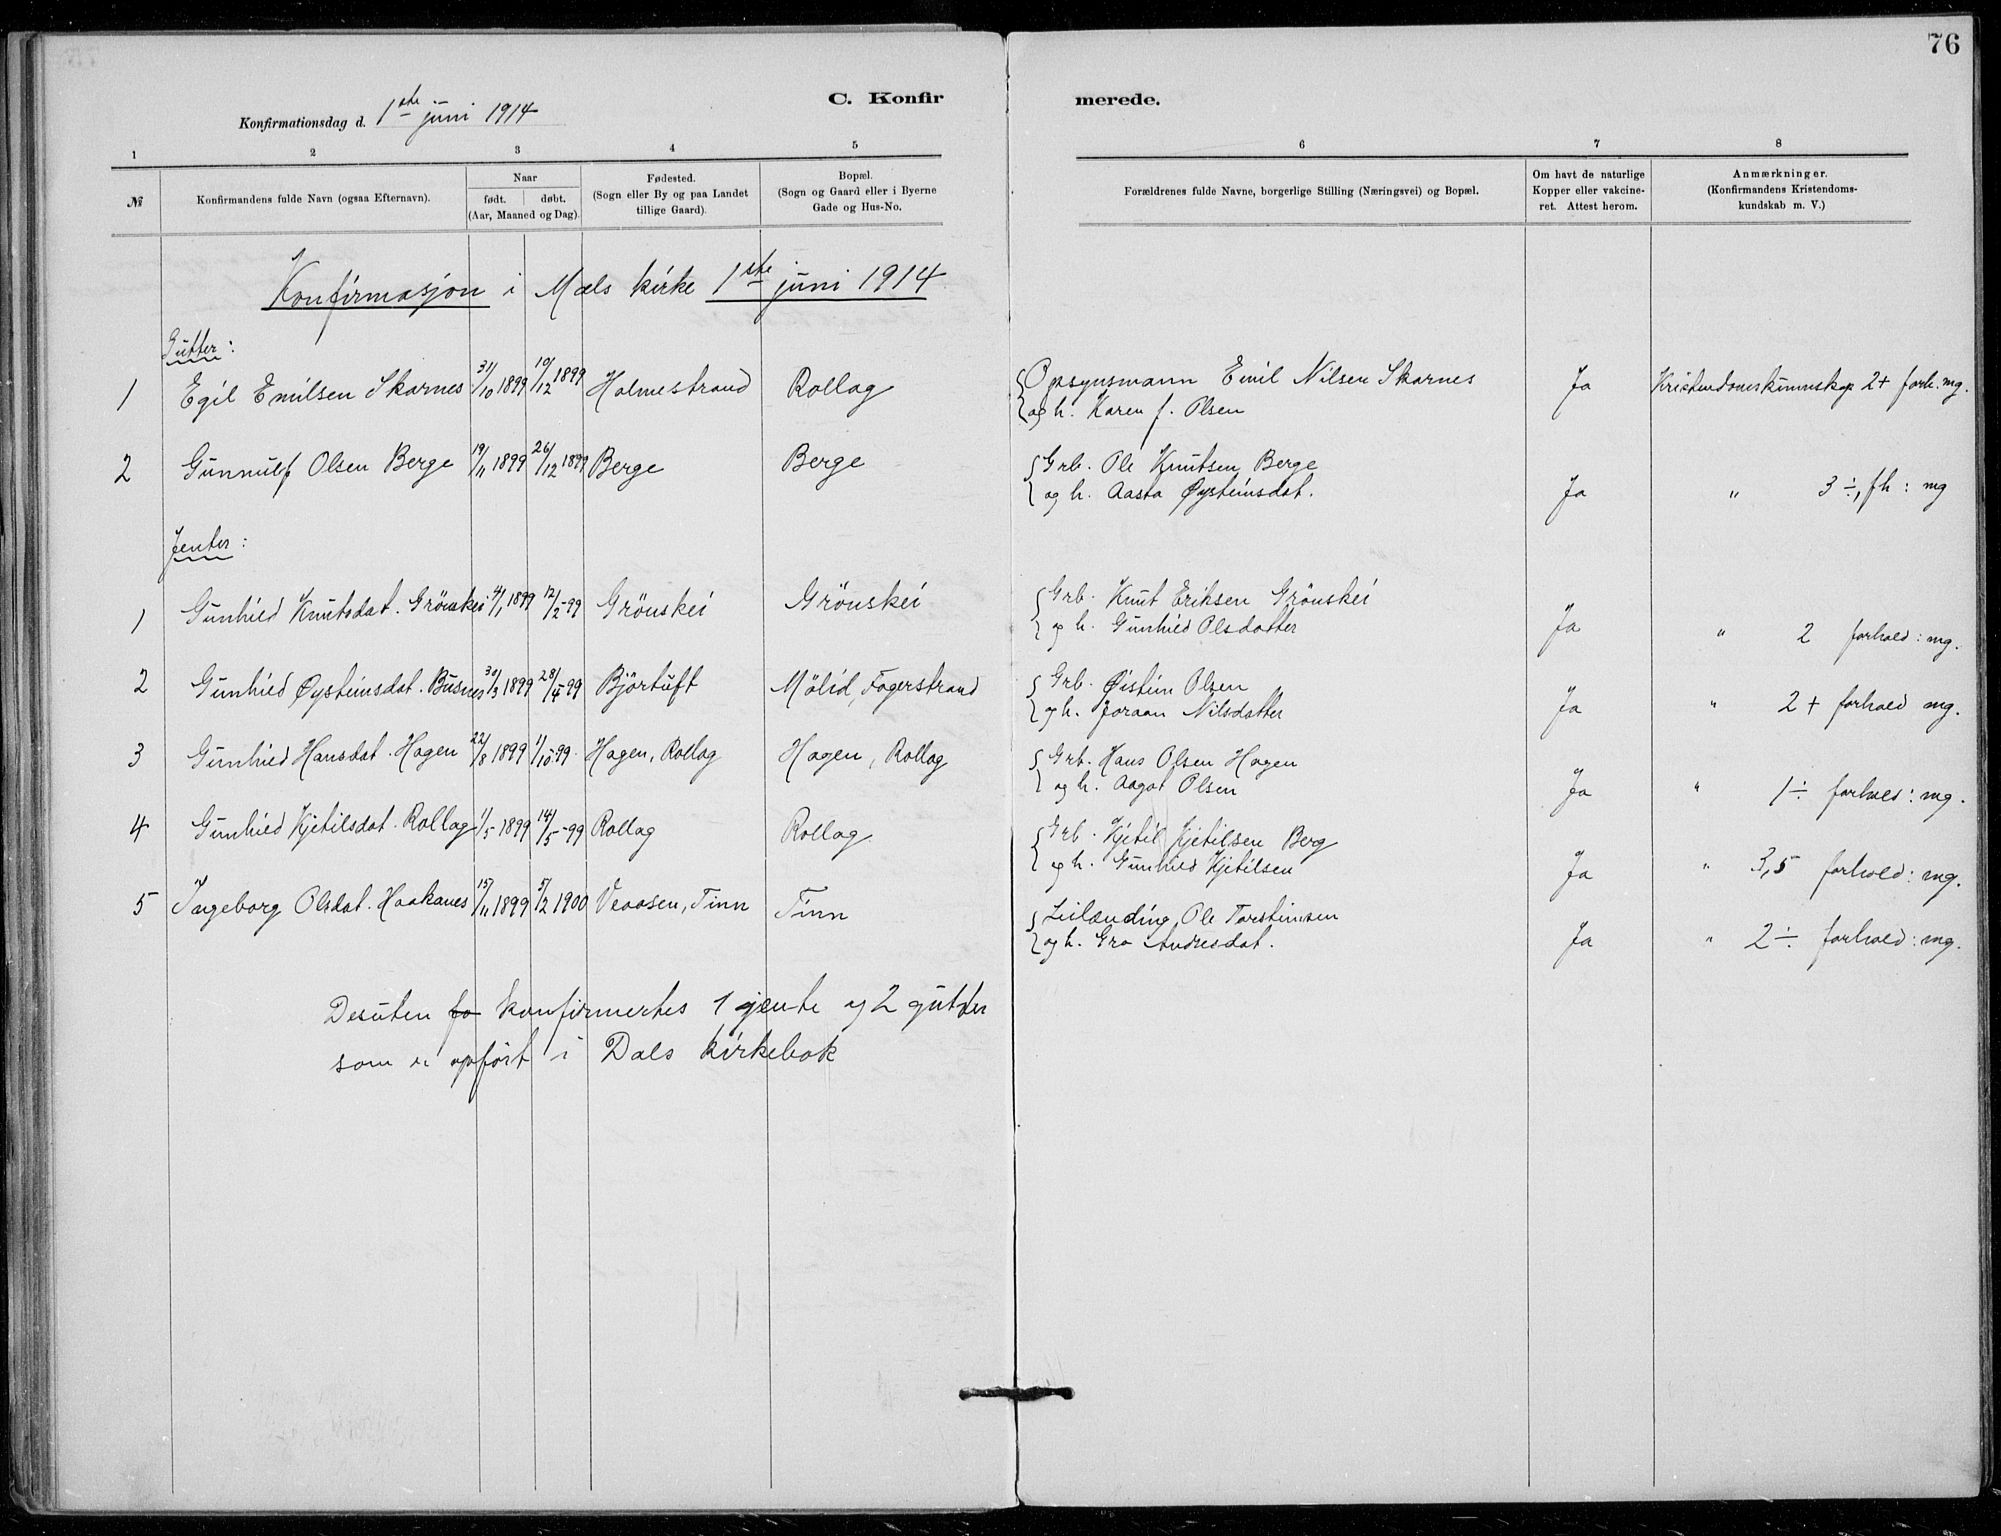 76
C. Konfirmerede.
Konfirmationsdag d. 1ste juni 1914
1 2 3 4 5 6 7 8
№
Konfirmandens fulde Navn (ogsaa Efternavn).
Naar
født. døbt.
(Aar, Maaned og Dag).
Fødested.
(Sogn eller By og paa Landet
tillige Gaard).
Bopæl.
(Sogn og Gaard eller i Byerne
Gade og Hus-No.
Forældrenes fulde Navne, borgerlige Stilling (Næringsvei) og Bopæl.
Om havt de naturlige
Kopper eller vakcine-
ret. Attest herom.
Anmærkninger.
(Konfirmandens Kristendoms-
kundskab m. V.)
Konfirmasjon i Mæls kirke 1ste juni 1914
Gutter:
1 Egil Emilsen Skarnes 31/10 1899 10/12 1899 Holmestrand Rollag { Opsynsmann Emil Nilsen Skarnes Ja Kristendomskunnskap 2+ forh. mg.
og h. Karen f. Olsen
2 Gunnulf Olsen Berge 19/11 1899 26/12 1899 Berge Berge { Grb. Ole Knutsen Berge
og h. Aasta Øysteinsdat. Ja " 3 ÷, fh : mg
Jenter:
1 Gunhild Knutsdat. Grönskei 4/1 1899 12/2-99 Grönskei Grönskei { Grb. Knut Eriksen Grönskei
og h. Gunhild Olsdatter Ja " 2 forhold : mg.
2 Gunhild Øysteinsdat. Busnes 30/3 1899 28/4-99 Björtuft Mölid, Fagerstrand { Grb. Øistein Olsen
og h. Joraan Nilsdatter Ja " 2+ forhold mg.
3 Gunhild Hansdat. Hagen 22/8 1899 1/10-99 Hagen, Rollag Hagen, Rollag { Grb. Hans Olsen Hagen
og h. Aagot Olsen Ja " 1÷ forhold : mg.
4 Gunhild Kjetilsdat. Rollag 1/5 1899 14/5-99 Rollag Rollag { Grb. Kjetil Kjetilsen Berg
og h. Gunhild Kjetilsen Ja " 3,5 forhold : mg.
5 Ingeborg Olsdat. Haakanes 15/11 1899 5/2 1900 Veaasen, Tinn Tinn { Leilænding, Ole Torsteinsen
og h. Gro Andresdat. Ja " 2÷ forhold : mg.
Desuten fo konfirmertes 1 gjente og 2 gutter
som er opført i Dals kirkebok